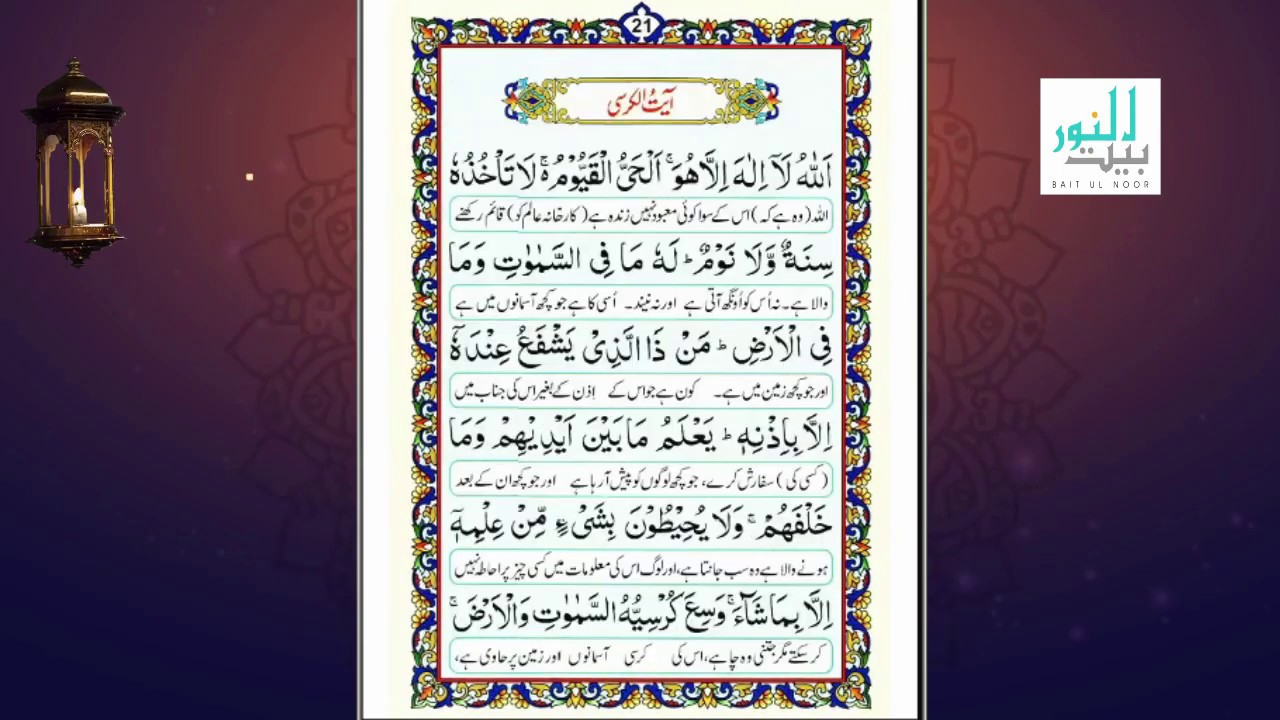 21
آیت الکرسی
اَللّٰهُ لَآ اِلٰهَ اِلَّا هُوَ ۚ اَلْحَىُّ الْقَيُّوْمُ ۚ لَا تَاْخُذُهٗ
اللہ (وہ ہے کہ) اس کے سوا کوئی معبود نہیں زندہ ہے (کارخانہ عالم کو) قائم رکھنے
سِنَةٌ وَّلَا نَوْمٌ ؕ لَهٗ مَا فِى السَّمٰوٰتِ وَمَا
والا ہے۔ نہ اُس کو اُونگھ آتی ہے اور نہ نیند۔ اُسی کا ہے جو کچھ آسمانوں میں ہے
فِى الْاَرْضِ ؕ مَنْ ذَا الَّذِىْ يَشْفَعُ عِنْدَهٗٓ
اور جو کچھ زمین میں ہے۔ کون ہے جو اس کے اِذن کے بغیر اس کی جناب میں
اِلَّا بِاِذْنِهٖ ؕ يَعْلَمُ مَا بَيْنَ اَيْدِيْهِمْ وَمَا
(کسی کی) سفارش کرے، جو کچھ لوگوں کو پیش آ رہا ہے اور جو کچھ ان کے بعد
خَلْفَهُمْ ۚ وَلَا يُحِيْطُوْنَ بِشَىْءٍ مِّنْ عِلْمِهٖٓ
ہونے والا ہے وہ سب جانتا ہے، اور لوگ اس کی معلومات میں کسی چیز پر احاطہ نہیں
اِلَّا بِمَا شَآءَ ۚ وَسِعَ كُرْسِيُّهُ السَّمٰوٰتِ وَالْاَرْضَ ۚ
کر سکتے مگر جتنی وہ چاہے، اس کی کرسی آسمانوں اور زمین پر حاوی ہے،
النور
بیت
BAIT UL NOOR